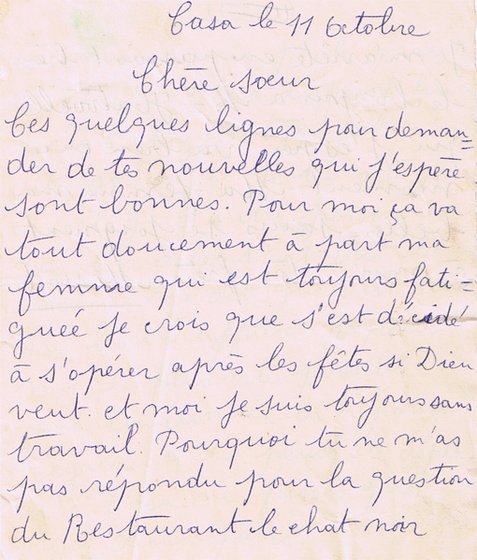 Casa le 11 Octobre
Chère soeur
Ces quelques lignes pour deman=
der de tes nouvelles qui j'espère
sont bonnes. Pour moi ça va
tout doucement à part ma
femme qui est toujours fati=
gueé je crois que s'est décidé
à s'opérer après les fêtes si Dieu
veut. et moi je suis toujours sans
travail. Pourquoi tu ne m'as
pas répondu pour la question
du Restaurant le chat noir